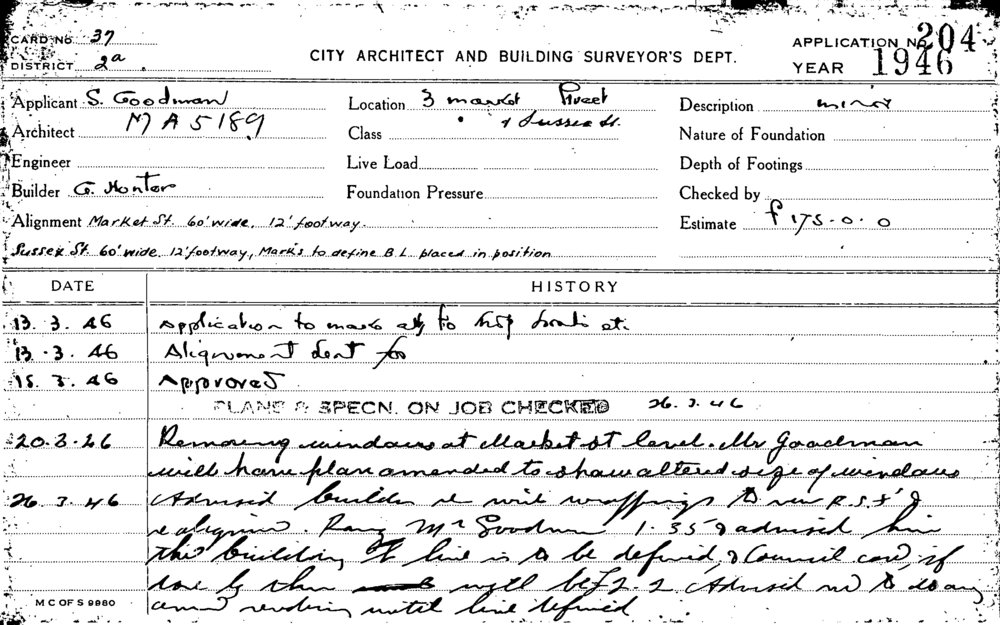 CARD No. 37
DISTRICT 2a
CITY ARCHITECT AND BUILDING SURVEYOR'S DEPT.
APPLICATION No. 204
YEAR 1946
Applicant S. Goodman
Location 3 market Street
Description minor
Architect MA 5189
Class & Sussex St.
Nature of Foundation
Engineer
Live Load
Depth of Footings
Builder G. Hunter
Foundation Pressure
Checked by
Alignment Market St. 60' wide, 12' footway.
Estimate £175-0-0
Sussex St. 60' wide, 12' footway, Marks to define B.L. placed in position
DATE HISTORY
13. 3. 46 Application to make to
13. 3. 46 Alignment sent for
15. 3. 46 Approved
PLANS & SPECN. ON JOB CHECKED 26. 3. 46
20.3.46 Removing windows at Market St level. Mr Goodman
will have plan amended to show altered size of windows
26. 3. 46 Advised builder re wire wrappings to new R.S.J's &
Rang Mr Goodman 1.35 & advised him
the building line is to be defined, & Council
will be Advised not to do any
rendering until line defined
M C OF S 9980